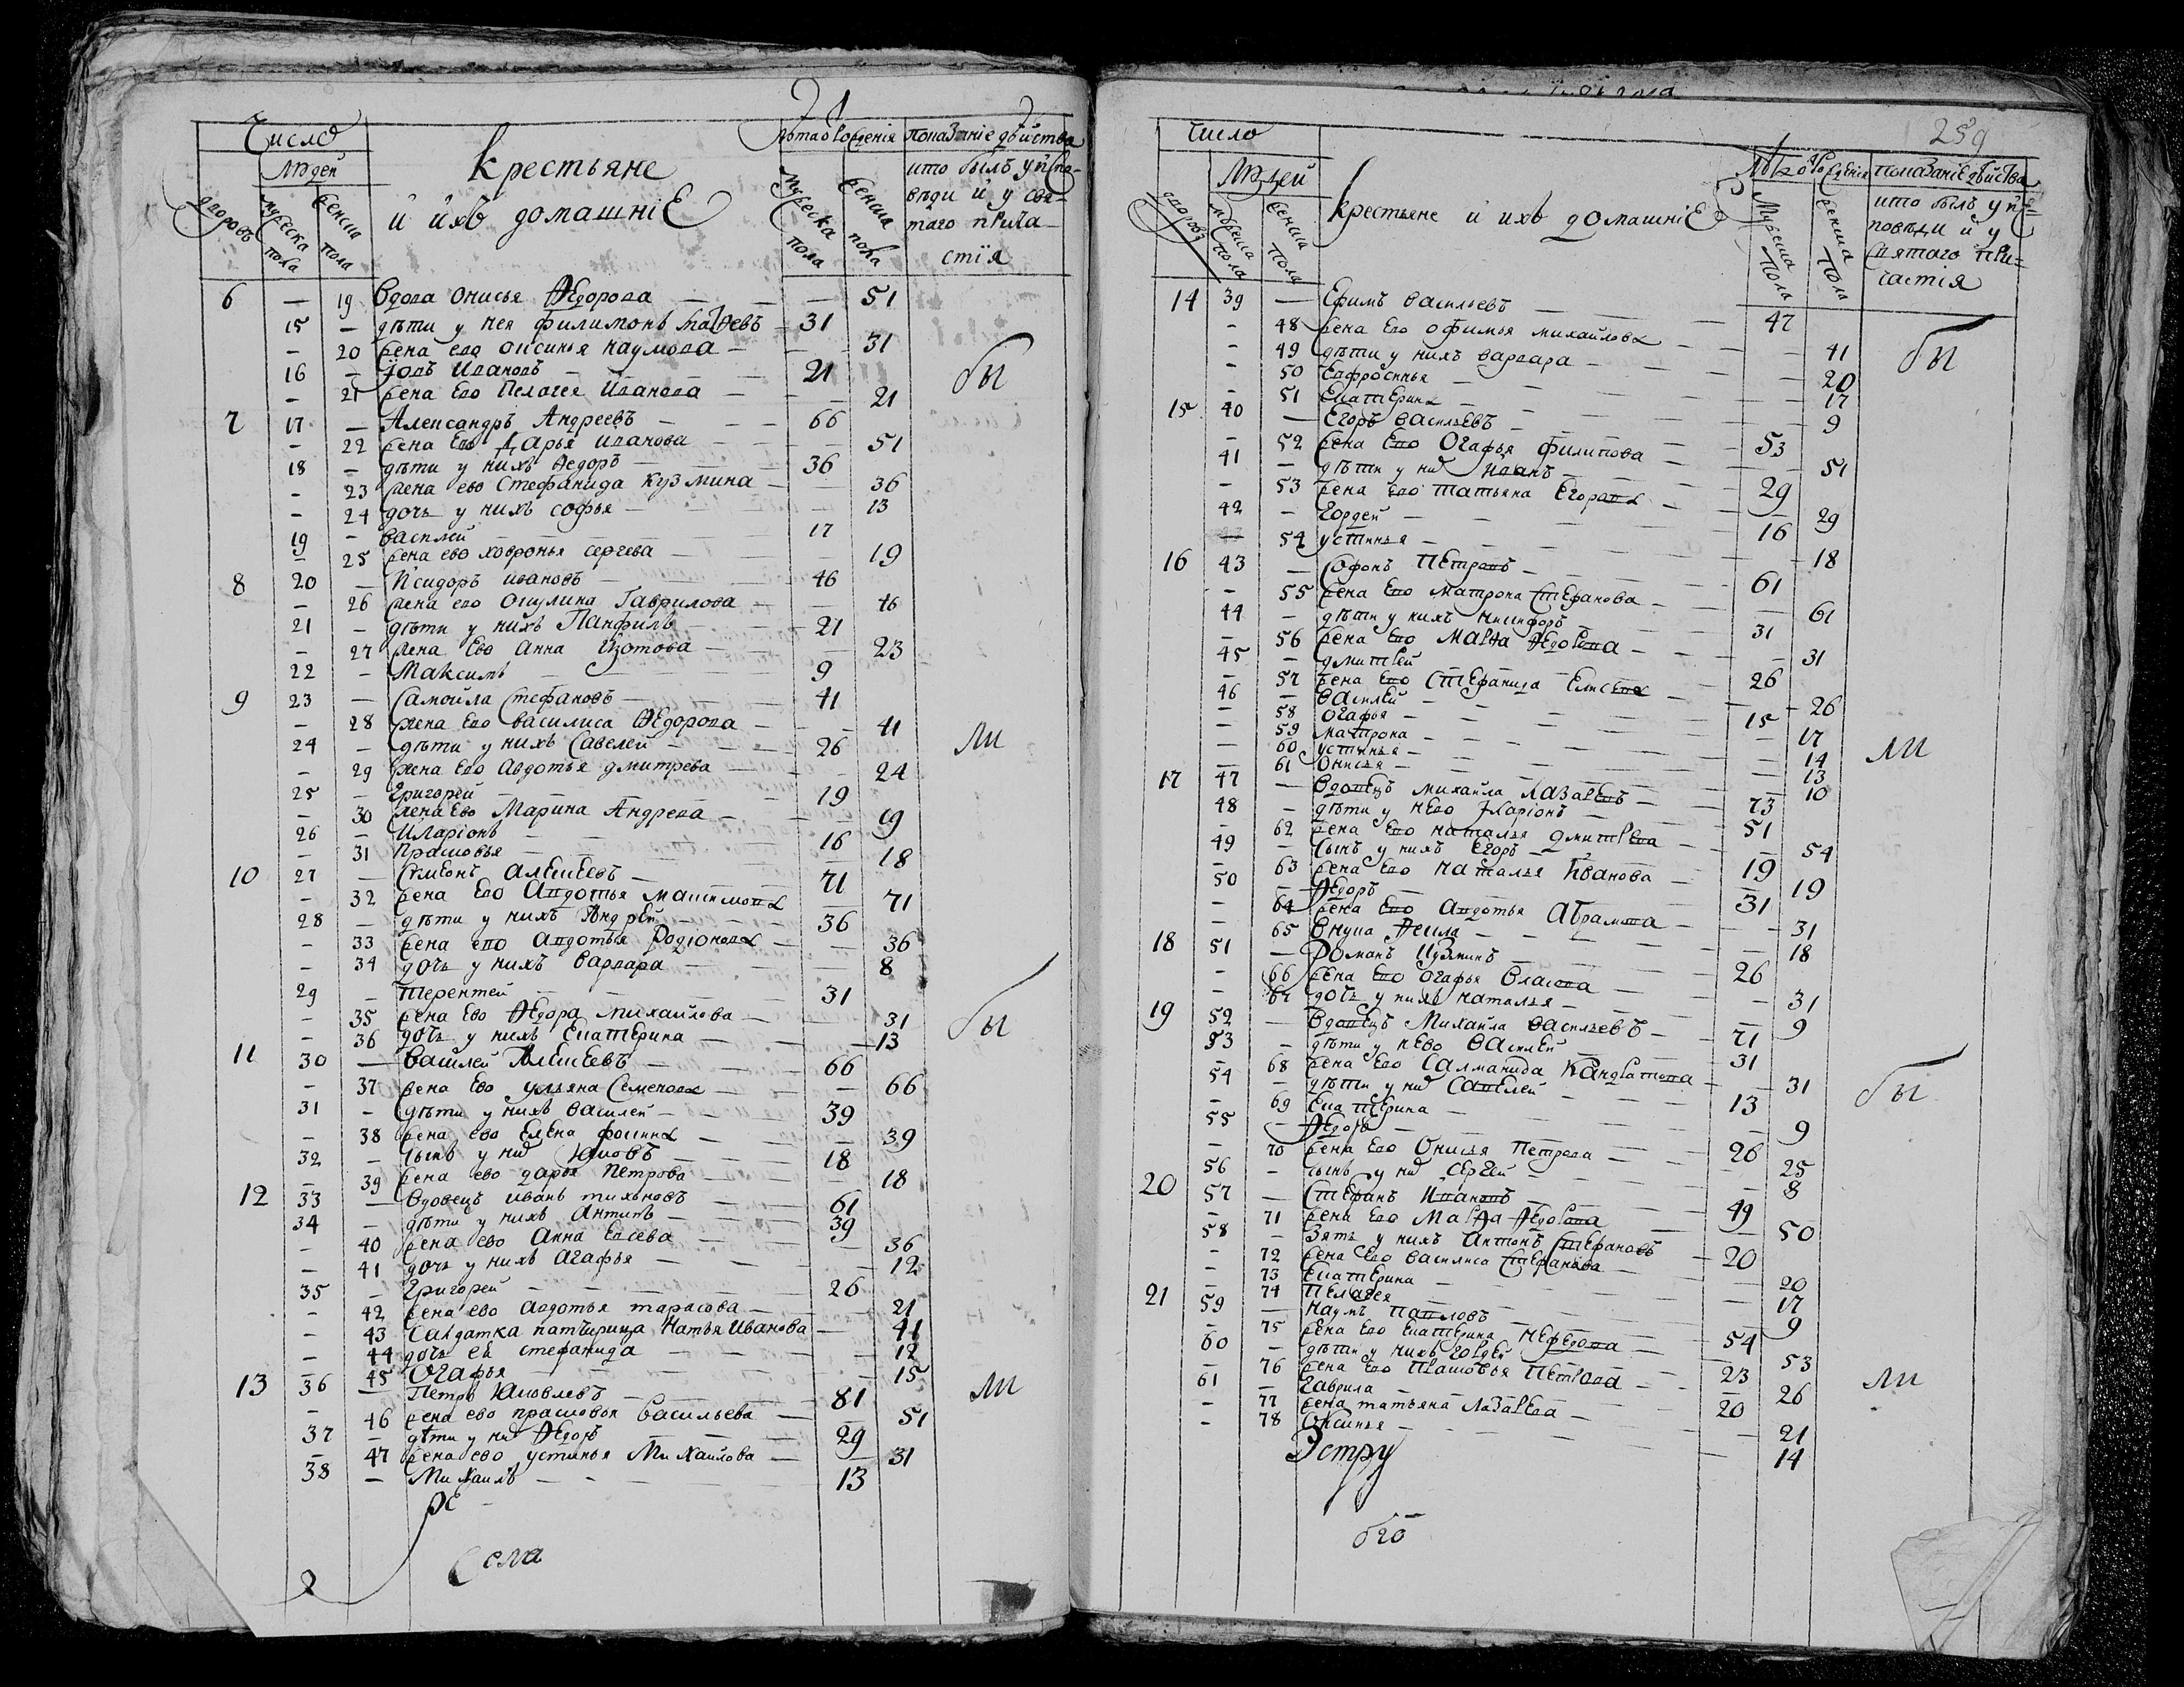 Число
Людей
дворовъ
мужеска пола
женска пола
крестьяне
и ихъ домашніе
лѣта от рожденія
мужеска пола
женска пола
показаніе действа
кто былъ у испо-
вѣди и у свя-
таго прича-
стія
6 — 19 Вдова Онисья Ѳедорова — — 51
15 — дѣти у нея филимонъ — 31
— 20 жена ево Оксинья наумова — — 31
16 — Іовъ Ивановъ — 21
— 21 жена Ево Пелагея Иванова — — 21
бы
7 17 — Александръ Андреевъ — 66
— 22 жена Ево Дарья иванова — — 51
18 — дѣти у нихъ Ѳедоръ — 36
— 23 жена ево Стефанида Кузмина — 36
— 24 дочь у нихъ софья — — 13
19 — василей — 17
— 25 жена ево ховронья сергева — 19
8 20 — Исидоръ ивановъ — 46
— 26 жена ево Окулина Гаврилова — — 46
21 — дѣти у нихъ Панфилъ — 21
— 27 жена Ево Анна Изотова — — 23
22 — Максимъ — 9
9 23 — Самойла Стефановъ — 41
— 28 жена Ево василиса Ѳедорова — — 41
24 — дѣти у нихъ Савелей — 26
— 29 жена Ево Авдотья дмитрева — — 24
ли
25 — Григорей — 19
— 30 жена Ево Марина Андрева — — 19
26 — Иларіонъ — 16
— 31 Прасковья — 18
10 27 — Симеонъ Алексеевъ — 71
— 32 жена Ево Авдотья Максимова — 71
28 — дѣти у нихъ Андрей — 36
— 33 жена ево Авдотья Родіонова — — 36
— 34 дочь у нихъ варвара — — 8
29 — Терентей — 31
— 35 жена Ево Ѳедора Михайлова — — 31
— 36 дочь у нихъ Екатерина — — 13
бы
11 30 — Василей Алексеевъ — 66
— 37 жена Ево ульяна Семенова — — 66
31 — дѣти у нихъ василей — 39
— 38 жена ево Елена фокина — — 39
32 — сынъ у них Яковъ — 18
— 39 жена ево дарья Петрова — — 18
12 33 — Вдовецъ иванъ тихоновъ — 61
34 — дѣти у нихъ Антипъ — 39
— 40 жена ево Анна Елсева — — 36
— 41 дочь у нихъ Агафья — — 12
35 — Григорей — 26
— 42 жена ево Авдотья тарасова — 21
— 43 Салдатка Иванова — 41
— 44 дочь ея стефанида — 12
— 45 Огафья — 15
13 36 — Петръ Яковлевъ — 81
— 46 жена ево прасковья васильева — 51
37 — дѣти у них Ѳедоръ — 29
— 47 жена ево устинья Михаилова — 31
38 — Михаилъ — 13
ли
Села
259
число
Людей
дворовъ
мужеска пола
женска пола
крестьяне и ихъ домашніе
Лѣта от рожденія
Мужеска Пола
женска Пола
показаніе действа
кто былъ у испо-
повѣди и у
святаго при-
частія
14 39 — Ефимъ васильевъ — 47
— 48 жена Ево офимья михайлова — — 41
— 49 дѣти у нихъ варвара — 20
— 50 Евфросинья — 17
— 51 Екатерина — 9
бы
15 40 — Егоръ васильевъ — 53
— 52 жена Ево Огафья филипова — 51
41 — дѣти у них Иванъ — 29
— 53 жена ево татьяна Егорова — 29
42 — Гордей — 16
— 54 устинья — 18
16 43 — Софонъ Петровъ — 61
— 55 жена Ево матрона Стефанова — 61
44 — дѣти у нихъ никифоръ — 31
— 56 жена Ево Марѳа Ѳедорова — 31
45 — дмитрей — 26
— 57 жена Ево Стефанида Елисева — 26
46 — Василей — 15
— 58 огафья — 17
— 59 матрона — 14
— 60 устинья — 13
— 61 Онисья — 10
ли
17 47 — Вдовецъ михайла Лазаревъ — 73
48 — дѣти у нево Иларіонъ — 51
— 62 жена Ево наталья дмитрева — 54
49 — сынъ у нихъ Егоръ — 19
— 63 жена Ево наталья Иванова — 19
50 — Ѳедоръ — 31
— 64 жена Ево Авдотья Абрамова — 31
— 65 внука Ѳекла — 18
18 51 — Романъ Кузминъ — 26
— 66 жена Ево огафья Власова — 31
— 67 дочь у нихъ наталья — 9
19 52 — Вдовецъ Михайла васильевъ — 71
53 — дѣти у нево василей — 31
— 68 жена Ево Салманида Кандратова — 31
54 — дѣти у них Савелей — 13
— 69 Екатерина — 9
55 — Ѳедоръ — 26
— 70 жена Ево Онисья Петрова — 25
56 — сынъ у них Сергей — 8
бы
20 57 — Стефанъ Ивановъ — 49
— 71 жена Ево Марѳа Ѳедорова — 50
58 — Зять у нихъ Антонъ Стефановъ — 20
— 72 жена Ево василиса Стефанова — 20
— 73 Екатерина — 17
— 74 Пелагея — 9
21 59 — Наумъ Павловъ — 54
— 75 жена Ево Екатерина Нефедова — 53
60 — дѣти у нихъ Гордей — 23
— 76 жена Ево Прасковья Петрова — 26
61 — Гаврила — 20
— 77 жена татьяна Лазарева — 21
— 78 Оксинья — 14
ли